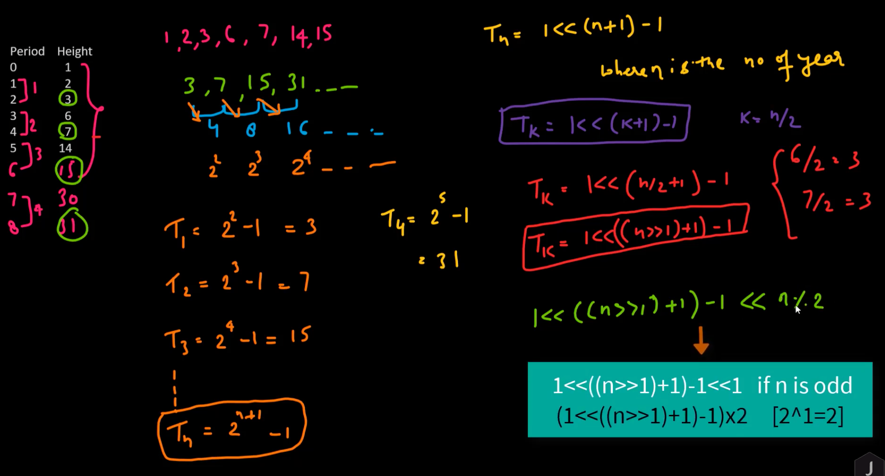 1,2,3,6,7,14,15
Period Height
0 1
1 2
2 3
3 6
4 7
5 14
6 15
7 30
8 31
]1
]2
]3
]4
3,7,15,31...---
4 8 16 ---
2^2 2^3 2^4 ---
T1 = 2^2-1 = 3
T2 = 2^3-1 = 7
T3 = 2^4-1 = 15
Tn = 2^n+1 -1
T4 = 2^5-1
= 31
Tn = 1<<(n+1)-1
where n is the no of year
TK = 1<<(K+1)-1
K = n/2
TK = 1<<(n/2+1)-1
TK = 1<<((n>>1)+1)-1
6/2 = 3
7/2 = 3
1<<((n>>1)+1)-1 << n%2
1<<((n>>1)+1)-1<<1 if n is odd
(1<<((n>>1)+1)-1)x2 [2^1=2]
J